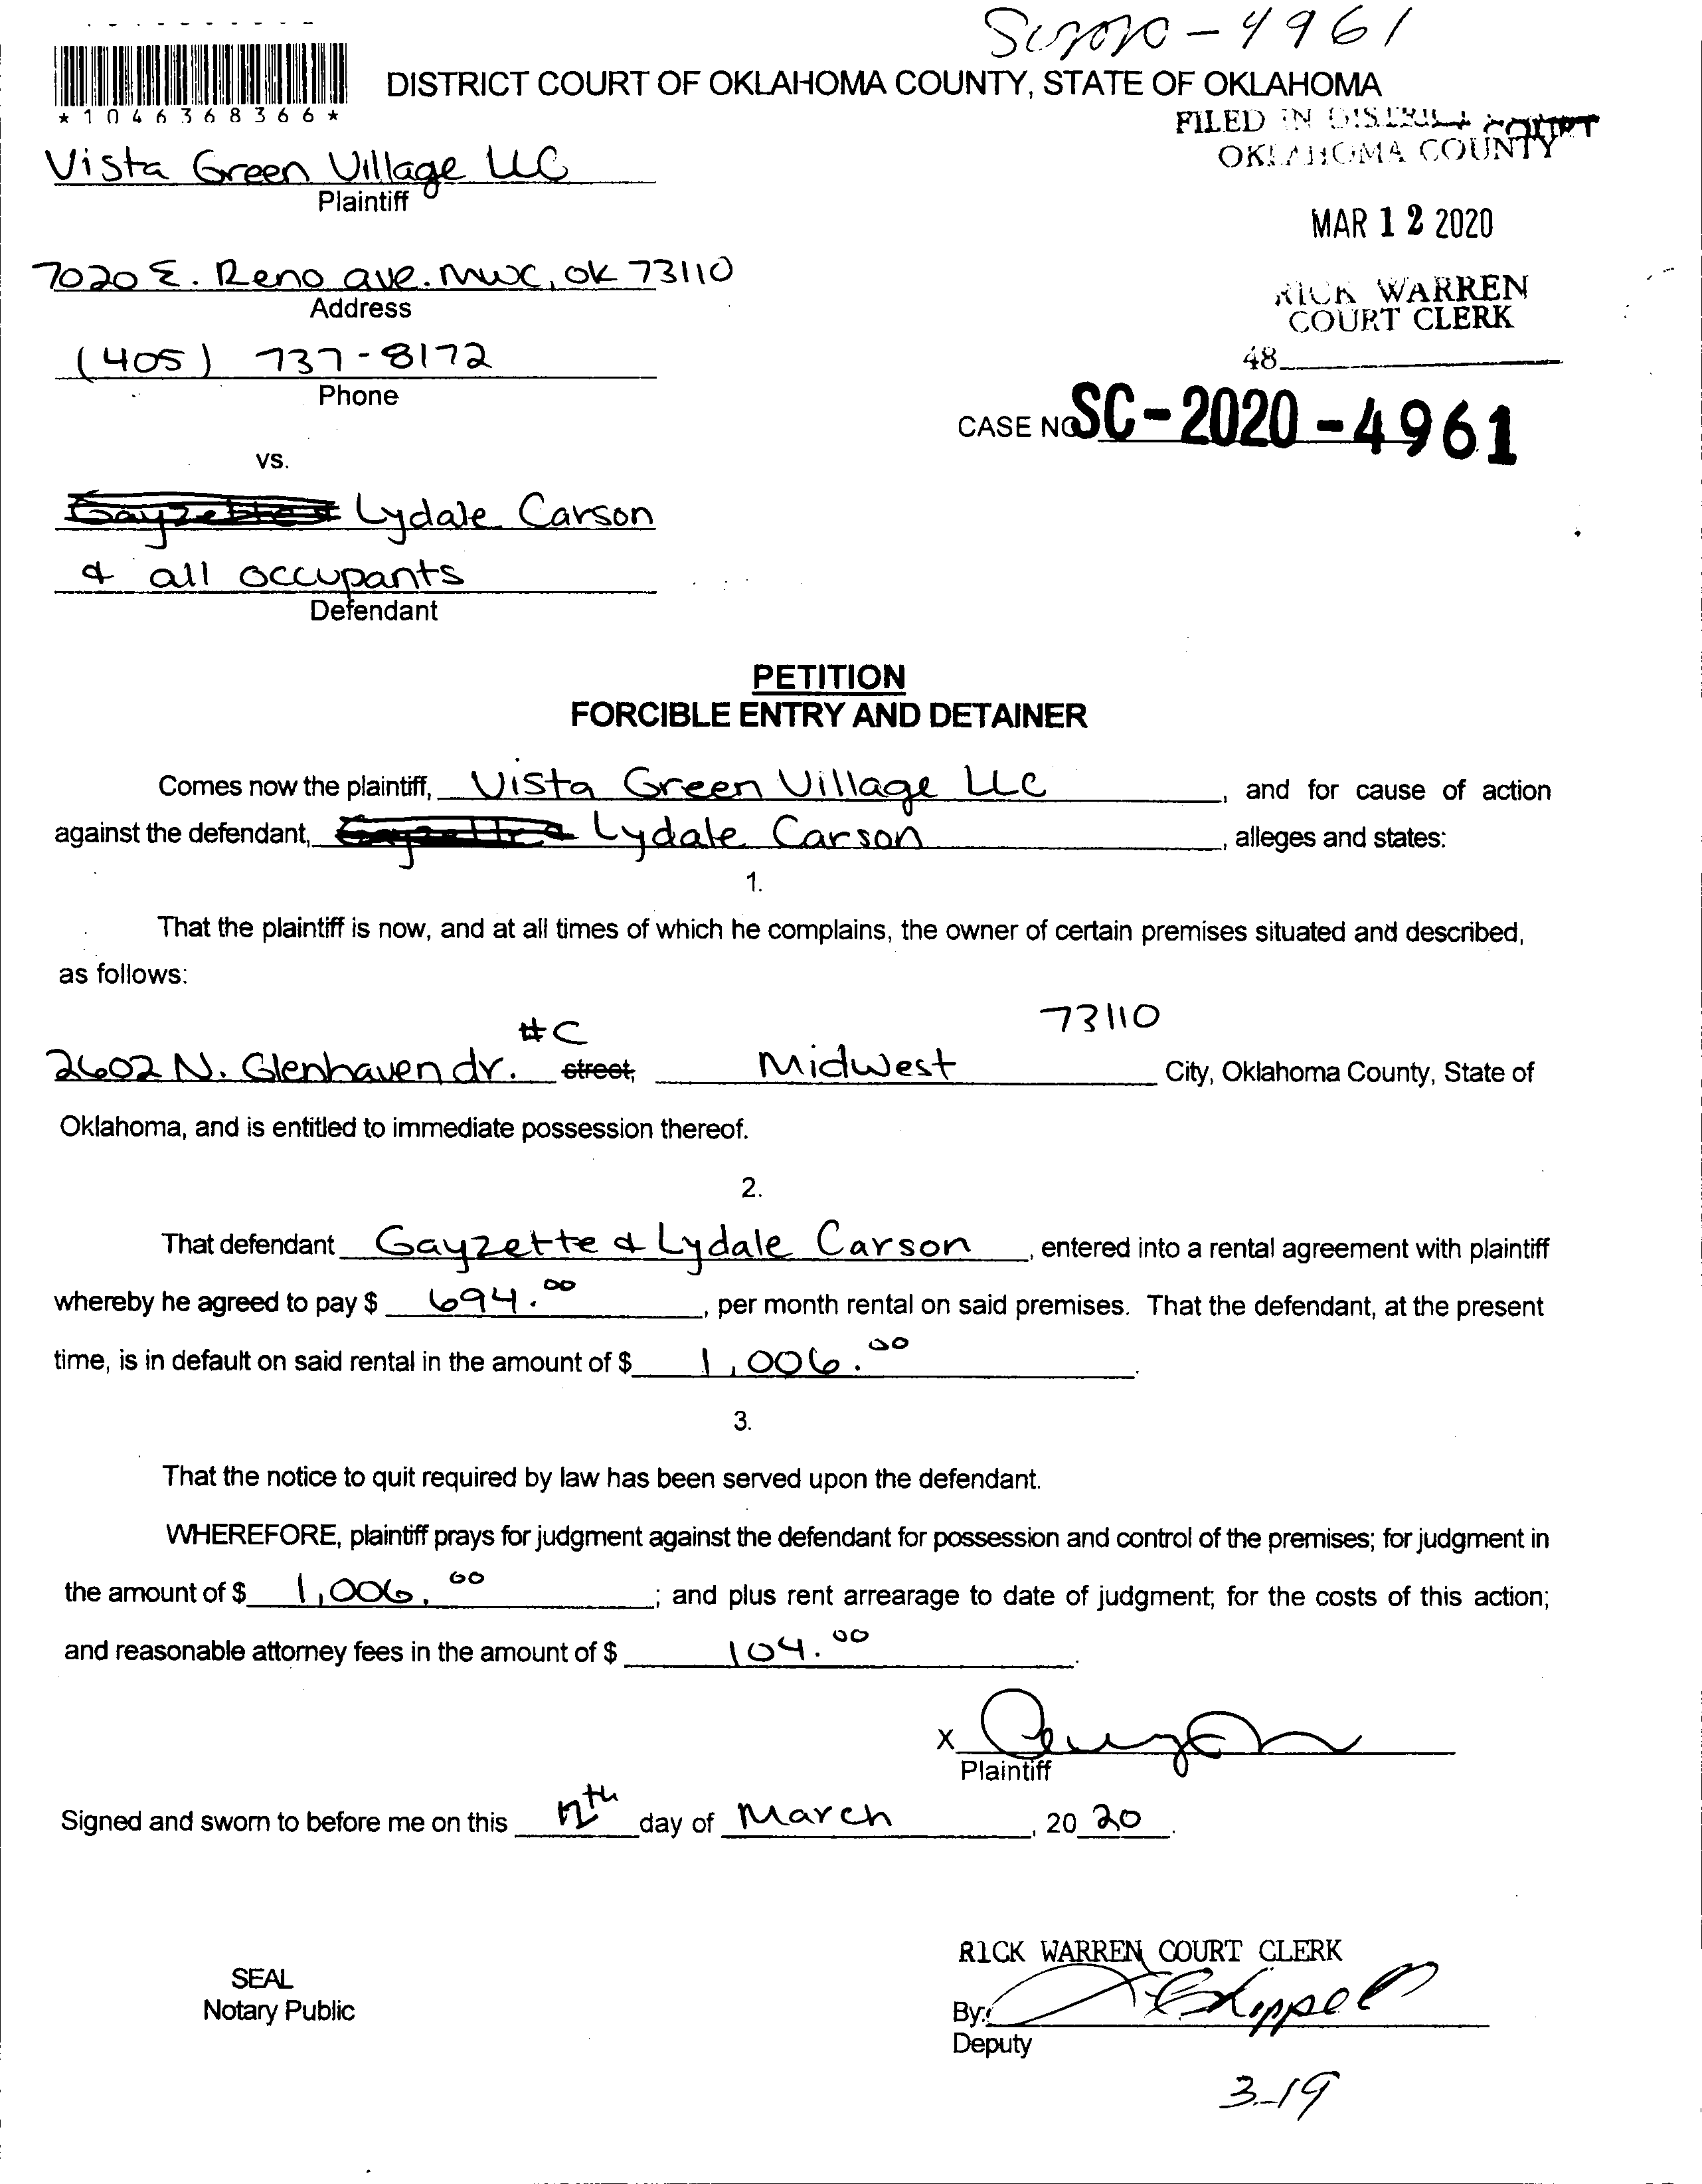 SC2020-4961
*1046368366*
DISTRICT COURT OF OKLAHOMA COUNTY, STATE OF OKLAHOMA
FILED IN DISTRICT COURT
OKLAHOMA COUNTY
Vista Green Village LLC
Plaintiff
MAR 12 2020
7020 E. Reno ave. MWC, OK 73110
Address
RICK WARREN
COURT CLERK
(405) 737-8172
48
Phone
CASE NO SC-2020-4961
vs.
Lydale Carson
& all occupants
Defendant
PETITION
FORCIBLE ENTRY AND DETAINER
Comes now the plaintiff, Vista Green Village LLC, and for cause of action
against the defendant, Lydale Carson, alleges and states:
1.
That the plaintiff is now, and at all times of which he complains, the owner of certain premises situated and described,
as follows:
#C 73110
2602 N. Glenhaven dr. street, Midwest City, Oklahoma County, State of
Oklahoma, and is entitled to immediate possession thereof.
2.
That defendant Gayzette & Lydale Carson, entered into a rental agreement with plaintiff
whereby he agreed to pay $ 694.00, per month rental on said premises. That the defendant, at the present
time, is in default on said rental in the amount of $ 1,006.00.
3.
That the notice to quit required by law has been served upon the defendant.
WHEREFORE, plaintiff prays for judgment against the defendant for possession and control of the premises; for judgment in
the amount of $ 1,006.00; and plus rent arrearage to date of judgment; for the costs of this action;
and reasonable attorney fees in the amount of $ 104.00.
X
Plaintiff
Signed and sworn to before me on this 12th day of March, 20 20.
RICK WARREN COURT CLERK
SEAL
Notary Public
By:
Deputy
3-19